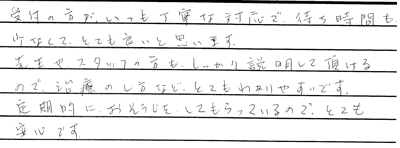 受付の方がいつも丁寧な対応で、待ち時間も
少なくて、とても良いと思います。
先生やスタッフの方も、しっかり説明して頂ける
ので、治療のし方など、とてもわかりやすいです。
定期的に、おそうじをしてもらっているので、とても
安心です。